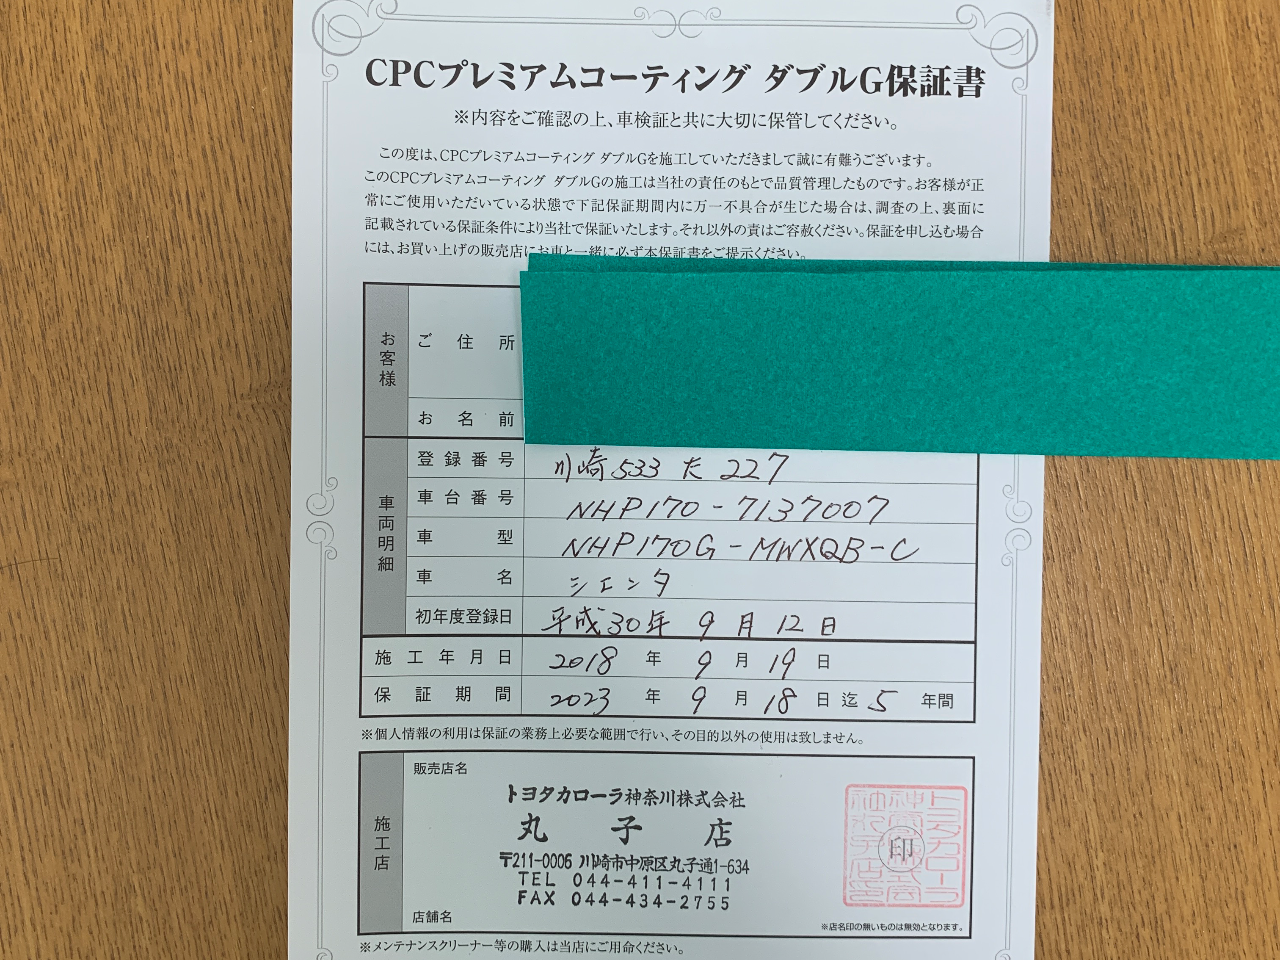 CPCプレミアムコーティング ダブルG保証書
※内容をご確認の上、車検証と共に大切に保管してください。
この度は、CPCプレミアムコーティング ダブルGを施工していただきまして誠に有難うございます。
このCPCプレミアムコーティング ダブルGの施工は当社の責任のもとで品質管理したものです。お客様が正
常にご使用いただいている状態で下記保証期間内に万一不具合が生じた場合は、調査の上、裏面に
記載されている保証条件により当社で保証いたします。それ以外の責はご容赦ください。保証を申し込む場合
には、お買い上げの販売店にお車と一緒に必ず本保証書をご提示ください。
お客様
ご住所
お名前
車両明細
登録番号 川崎 533 た 227
車台番号 NHP170-7137007
車型 NHP170G-MWXQB-C
車名 シエンタ
初年度登録日 平成30年 9月12日
施工年月日 2018年 9月19日
保証期間 2023年 9月18日迄 5年間
※個人情報の利用は保証の業務上必要な範囲で行い、その目的以外の使用は致しません。
施工店
販売店名
トヨタカローラ神奈川株式会社
丸子店
〒211-0006 川崎市中原区丸子通1-634
TEL 044-411-4111
FAX 044-434-2755
店舗名
印
※店名印の無いものは無効となります。
※メンテナンスクリーナー等の購入は当店にご用命ください。